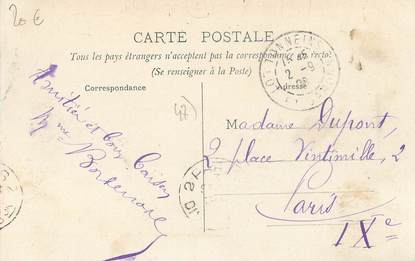 20 €
CARTE POSTALE
Tous les pays étrangers n'acceptent pas la correspondance au recto.
(Se renseigner à la Poste)
Correspondance
Adresse
47
Amitiés et bons baisers
Mme
Madame Dupont,
2 place Vintimille, 2
Paris
IXe